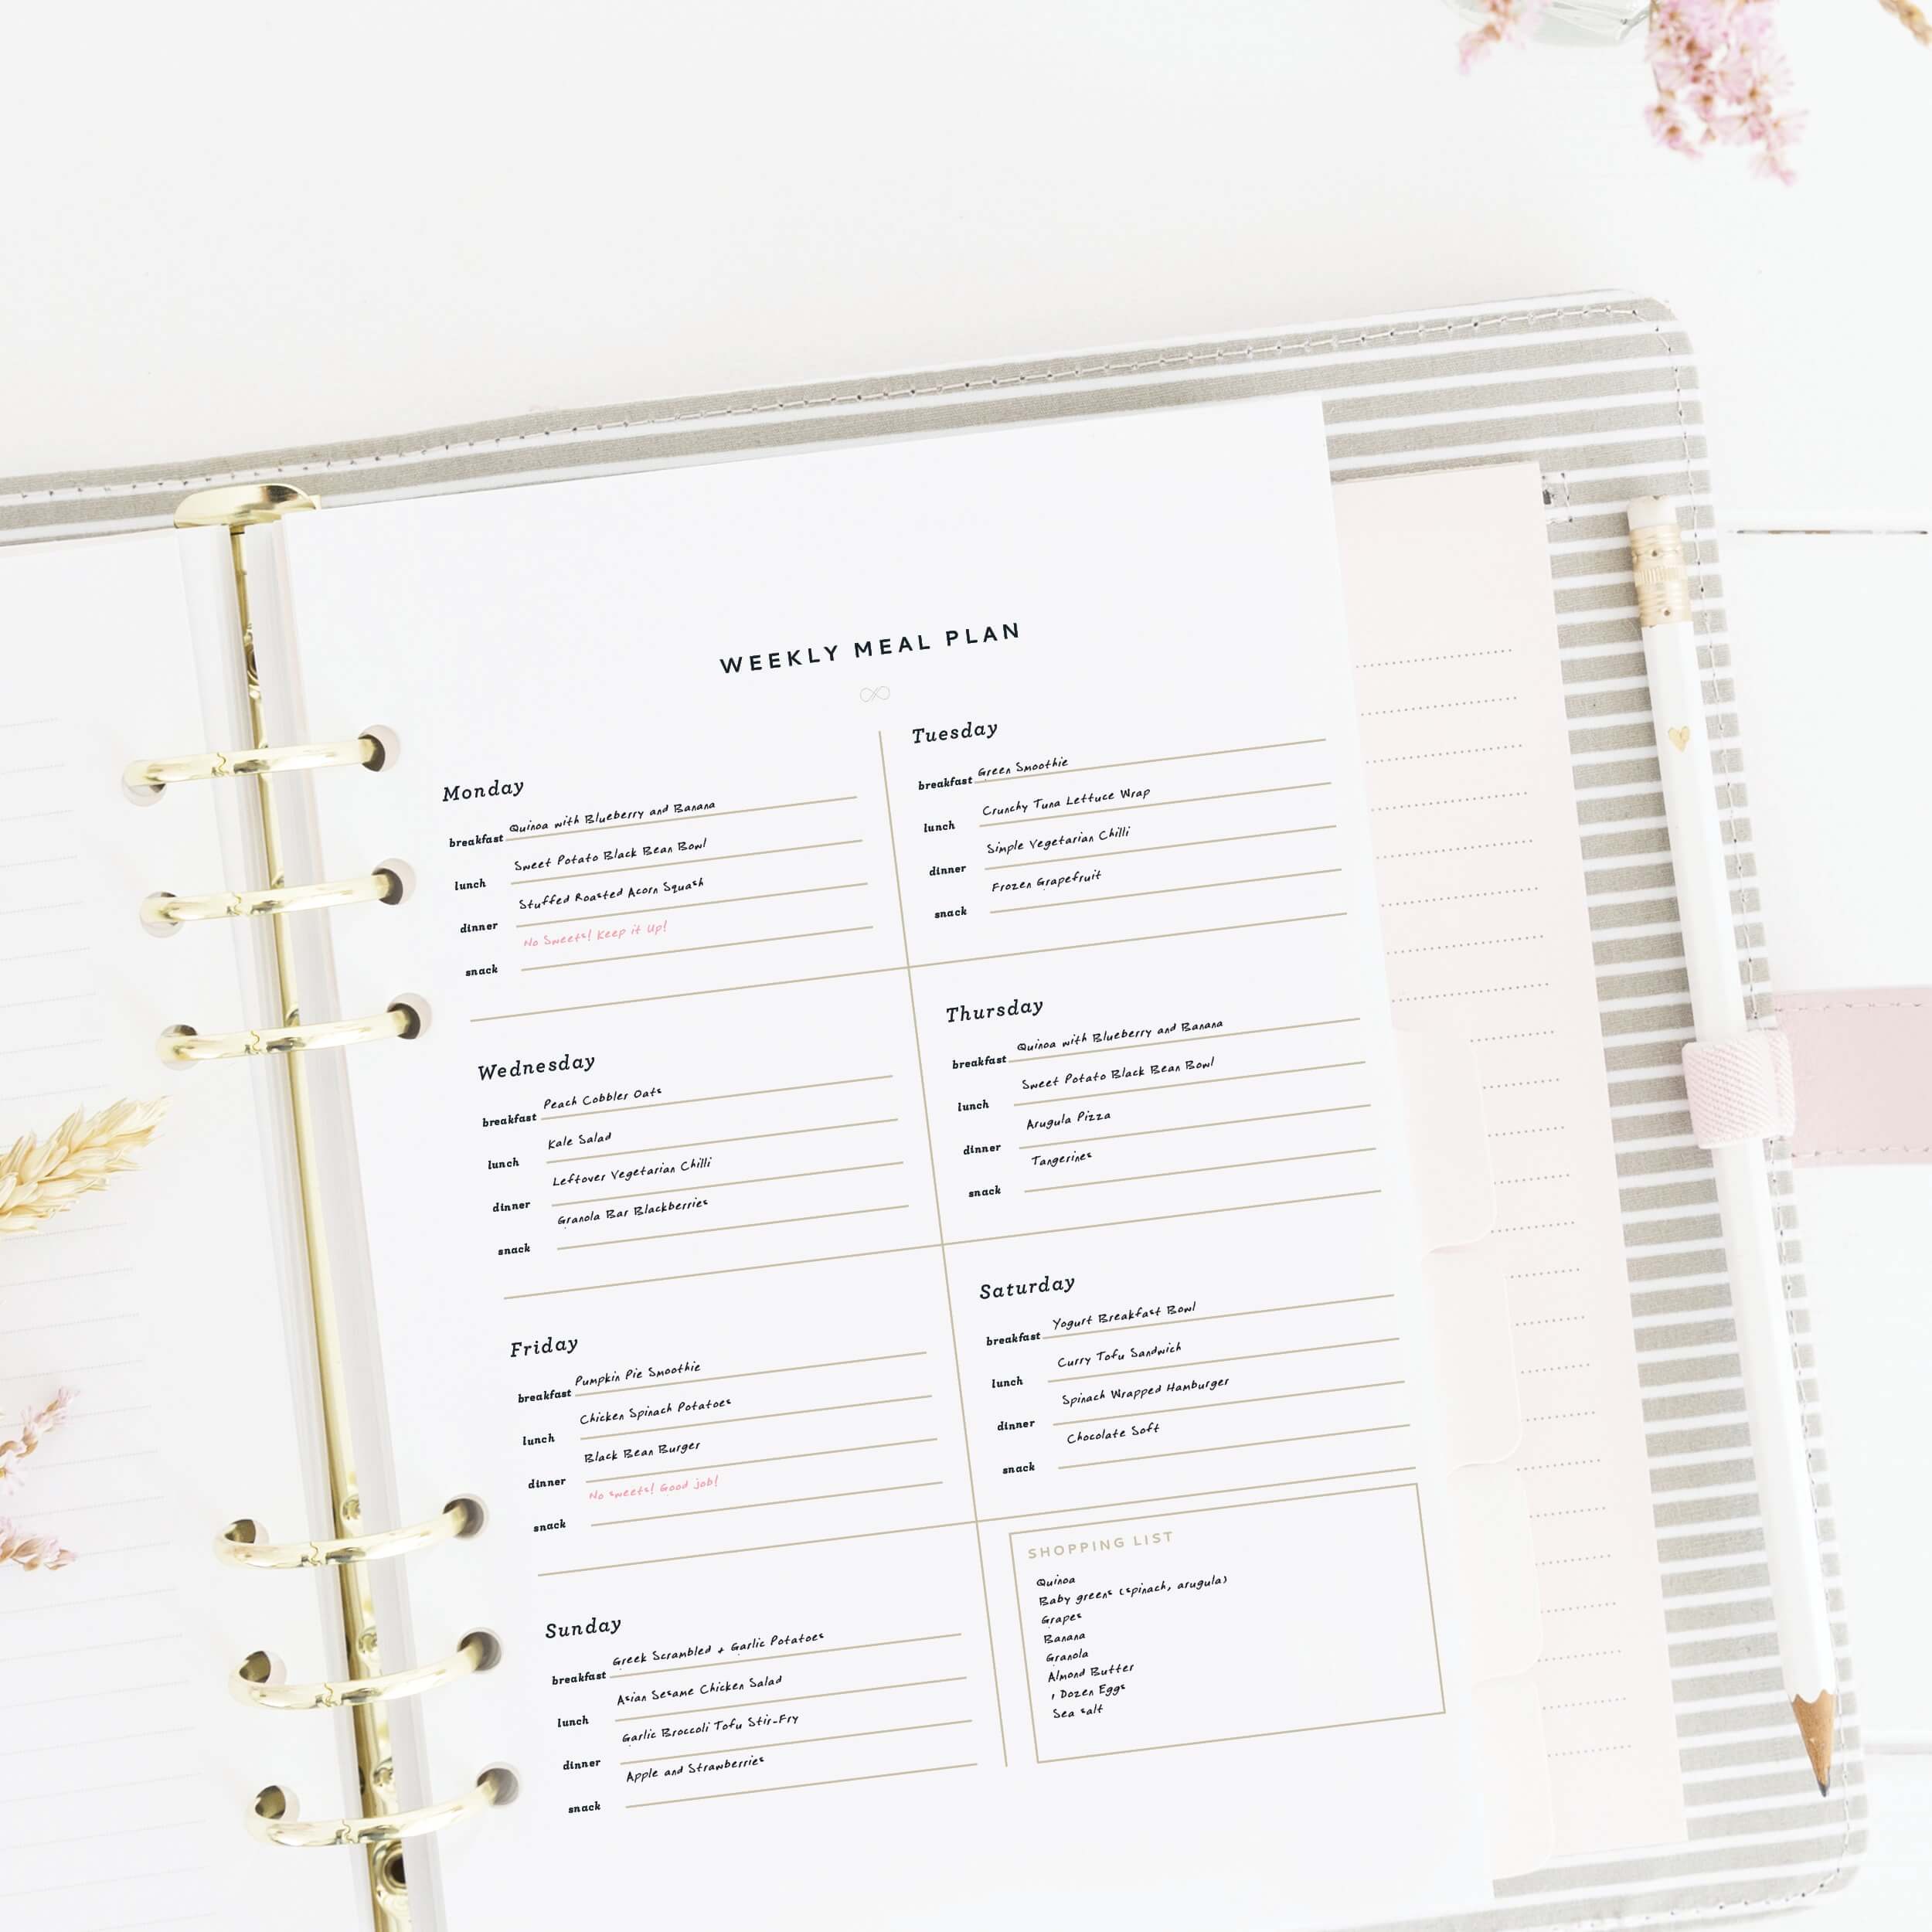 WEEKLY MEAL PLAN
Monday
breakfast Quinoa with Blueberry and Banana
lunch Sweet Potato Black Bean Bowl
dinner Stuffed Roasted Acorn Squash
snack No Sweets! Keep it Up!
Tuesday
breakfast Green Smoothie
lunch Crunchy Tuna Lettuce Wrap
dinner Simple Vegetarian Chilli
snack Frozen Grapefruit
Wednesday
breakfast Peach Cobbler Oats
lunch Kale Salad
dinner Leftover Vegetarian Chilli
snack Granola Bar Blackberries
Thursday
breakfast Quinoa with Blueberry and Banana
lunch Sweet Potato Black Bean Bowl
dinner Arugula Pizza
snack Tangerines
Friday
breakfast Pumpkin Pie Smoothie
lunch Chicken Spinach Potatoes
dinner Black Bean Burger
snack No sweets! Good job!
Saturday
breakfast Yogurt Breakfast Bowl
lunch Curry Tofu Sandwich
dinner Spinach Wrapped Hamburger
snack Chocolate Soft
Sunday
breakfast Greek Scrambled + Garlic Potatoes
lunch Asian Sesame Chicken Salad
dinner Garlic Broccoli Tofu Stir-Fry
snack Apple and Strawberries
SHOPPING LIST
Quinoa
Baby greens (spinach, arugula)
Grapes
Banana
Granola
Almond Butter
1 Dozen Eggs
Sea salt